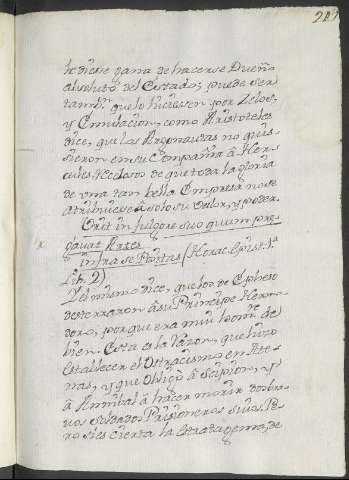 le diesse gana de hacerse Dueño
absoluto del Estado; puede ser
tamb.n que lo hiciessen por Zelos,
y Emulacion, como Aristoteles
dice, que los Argonautas no quis
sieron en su Compañia â Her
cules rezelosos de que toda la gloria
de una tan bella Empresa no se
atribuiese â solo su valor, y poder.
Urit in fulgore suo quium pre
gavat Artes
infra se Positas (Horac. Epist. 1.ª
Lib. 2)
Y el mismo dice, que los de Epheso
desterraron â su Principe Hermo
doro, porque era mui hom.e de
bien. Esta es la razon, que hizo
establecer el Ostracismo en Ate
nas, y que obligò â Scipion, y
â Annibal â hacer morir dos bra
vos soldados Prisioneros suios. Pe
ro si es cierta la estratagema, de